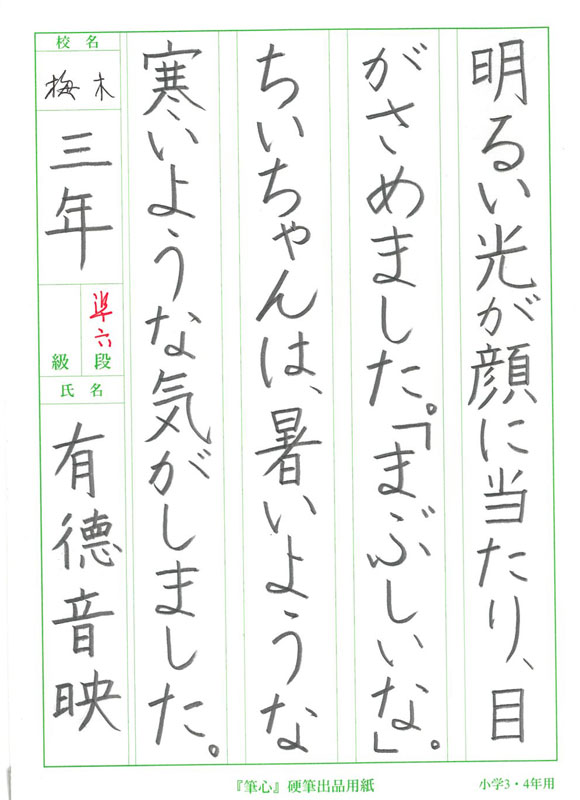 明るい光が顔に当たり、目
がさめました。「まぶしいな」。
ちいちゃんは、暑いような
寒いような気がしました。
校名
梅木
三年
準六
段
級
氏名
有德音映
『筆心』硬筆出品用紙
小学3・4年用